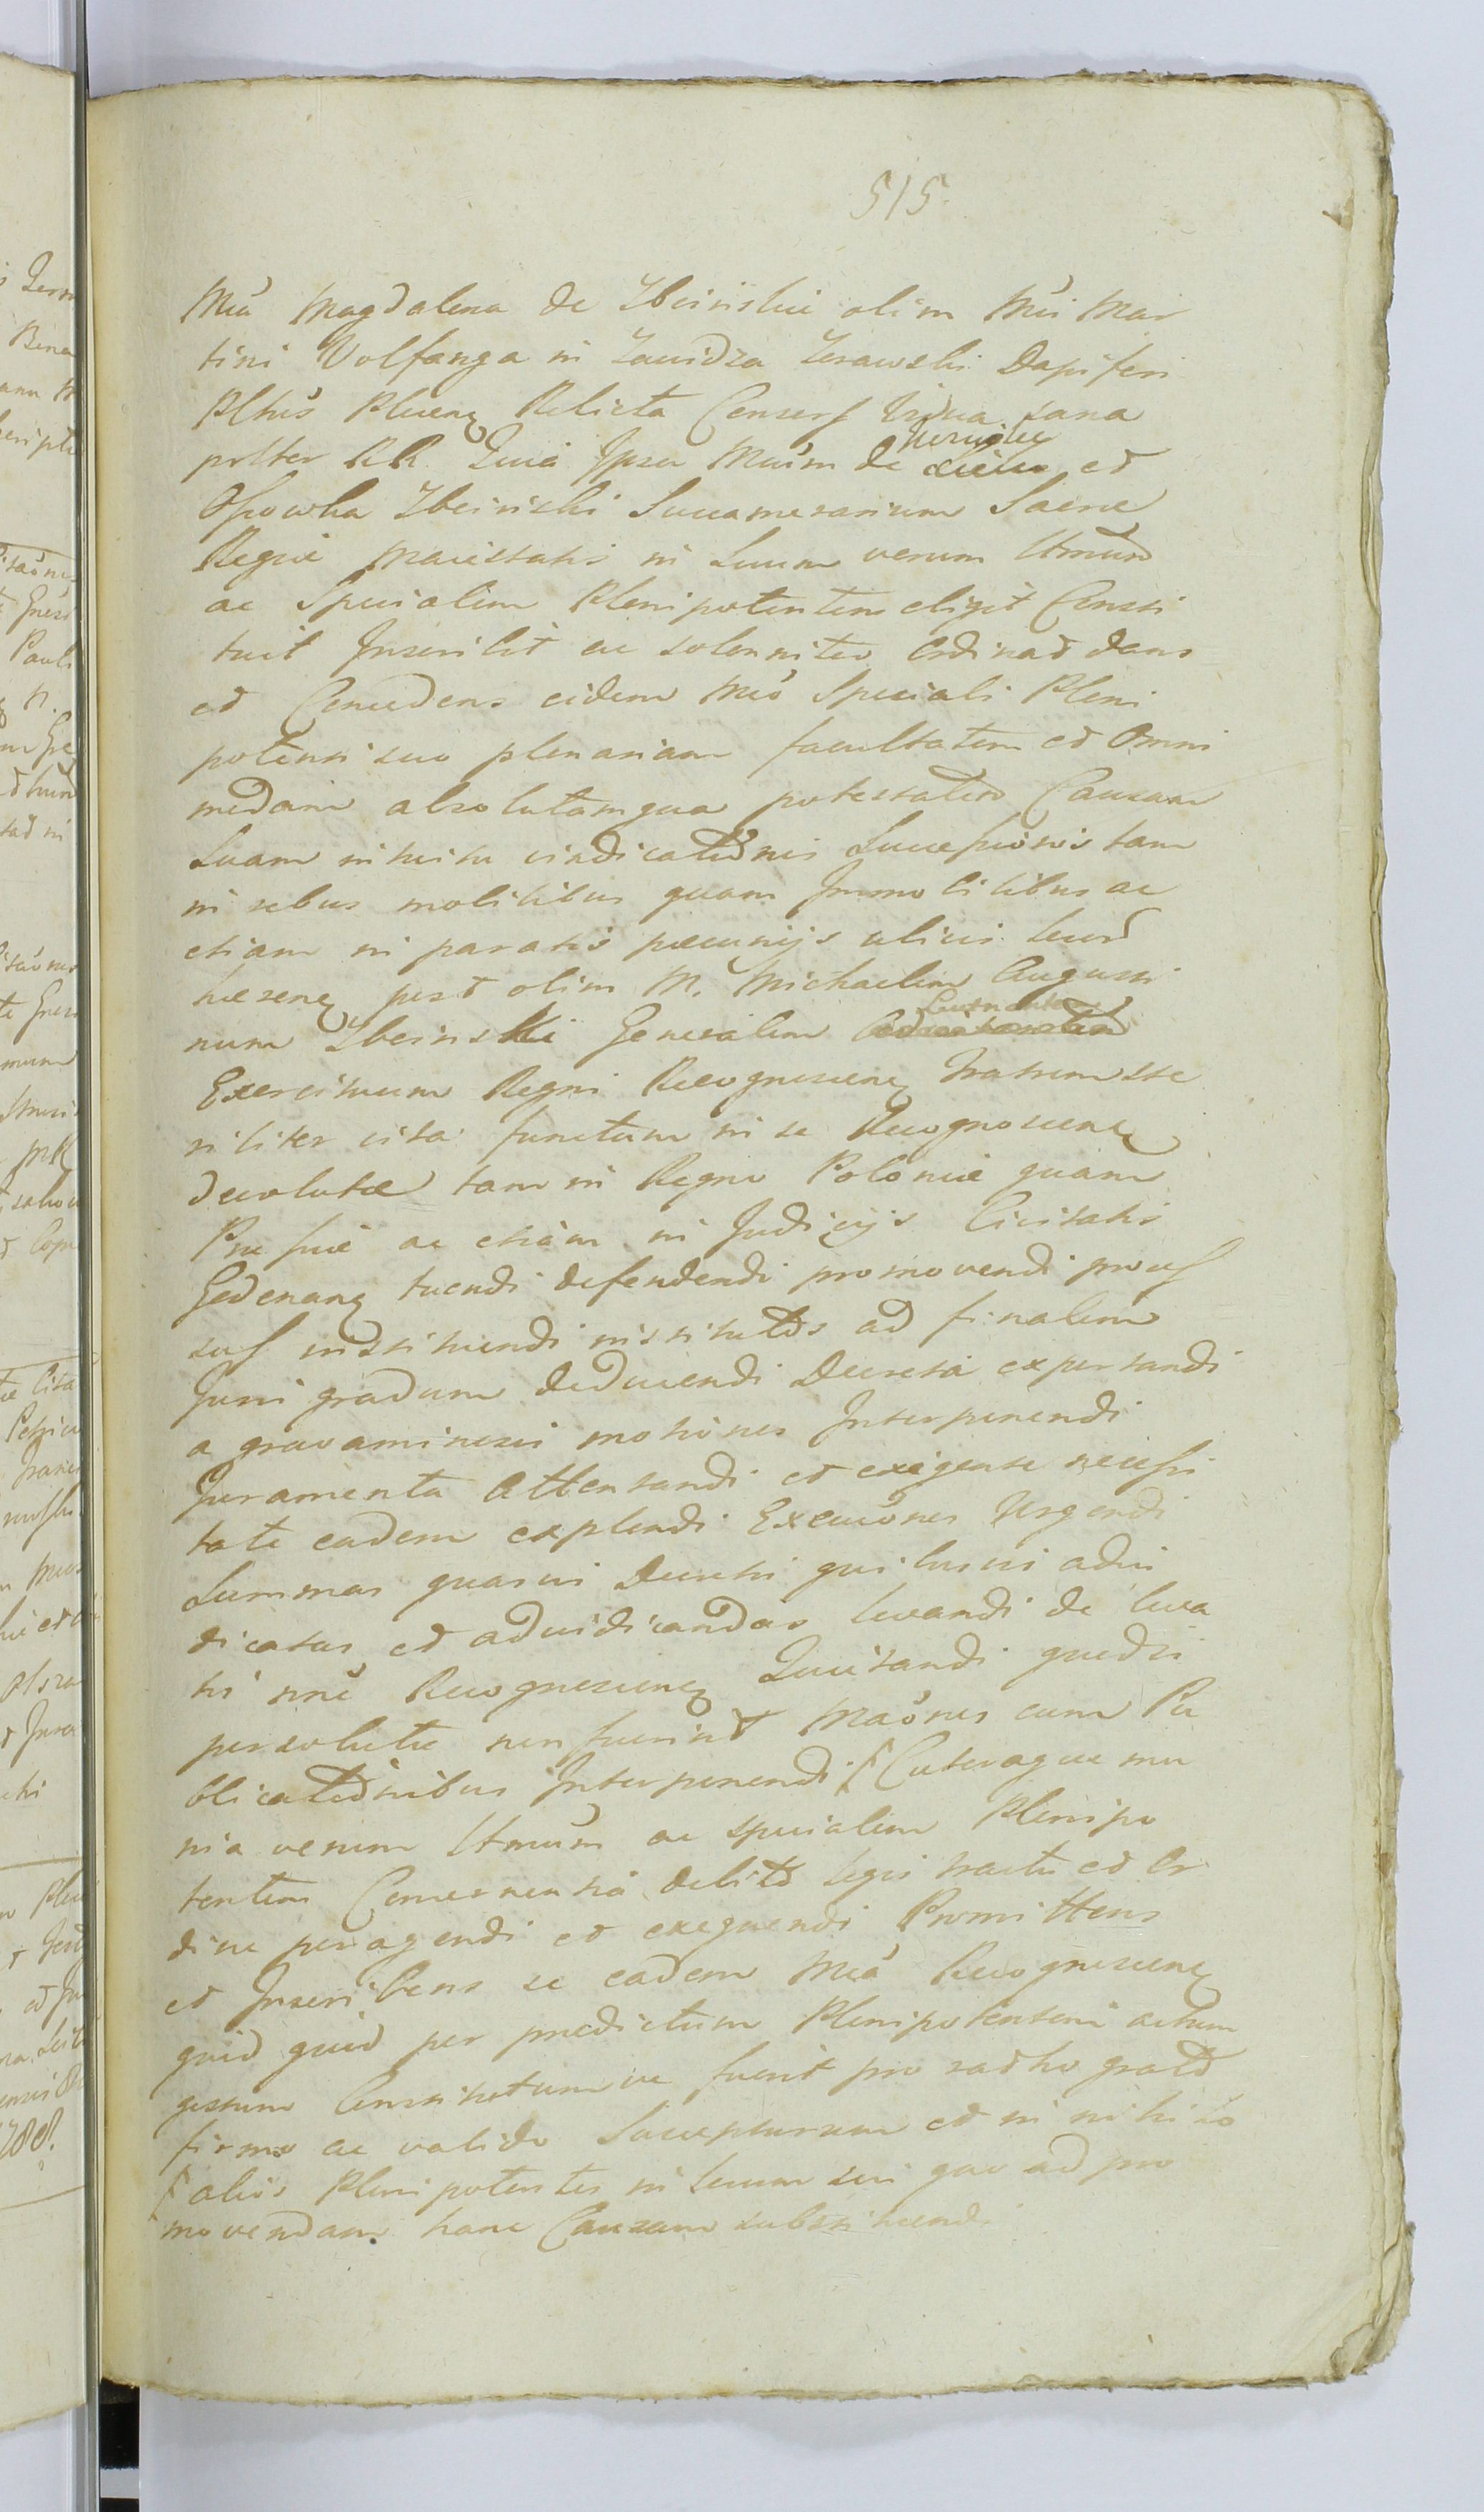 515.
Mca Magdalena de Zboinskie olim Mci Mar
tini Volfanga in Zawidza Zerawski Dapiferi
Pltus Plocen Relicta Consors Vidua sana
pslter RR. Quia Ipsa Mcum de et
Osowka Zboinski Succamerarium Sacre
Regie Maiestatis in Suum verum Ltmum
ac Specialem Plenipotentem eligit Consti
tuit Inscribit ac solenniter Ordinat dans
et Concedens eidem Mco Speciali Pleni
potenti suo plenariam facultatem et Omni
modam absolutamque potestatem Causam
Suam intuitu vindicationis Successionis tam
in rebus mobilibus quam Immobilibus ac
etiam in paratis pecunijs alicui
post olim M. Michaelem Augusti
num Zboinski Generalem Locumtenentem
Exercituum Regni Recognoscen fratrem ste
riliter vita functum in se Recognoscen
devolute tam in Regno Polonie quam
Prussie ac etiam in Judicijs Civitatis
Gedanen tuendi defendendi promovendi processus
instituendi institutos ad finalem
Juris gradum deducendi Decreta expor tandi
a gravaminosis motiones Interponendi
Juramenta Attentandi et exigente necessi
tate eadem explendi Execuones Urgendi
Summas quasvis Decretis quibusvis adiu
dicatas et adiudicandas levandi de leva
tis noie Recognoscen Quietandi quodsi
persolute non fuerint Maones cum Pu
blicationibus Interponendi Ceteraque mu
nia verum Ltmum ac specialem Plenipo
tentem Concernentia debito legis tractu et Or
dine peragendi et exequendi Promittens
et Inscribens se eadem Mca Recognoscen
quid quid per predictum Plenipotentem actum
gestum Constitutumve fuerit pro ratho grato
firmo ac valido Suscepturum et in nihilo
alios Plenipotentes in locum sui quo ad pro
movendam hanc Causam substituendi